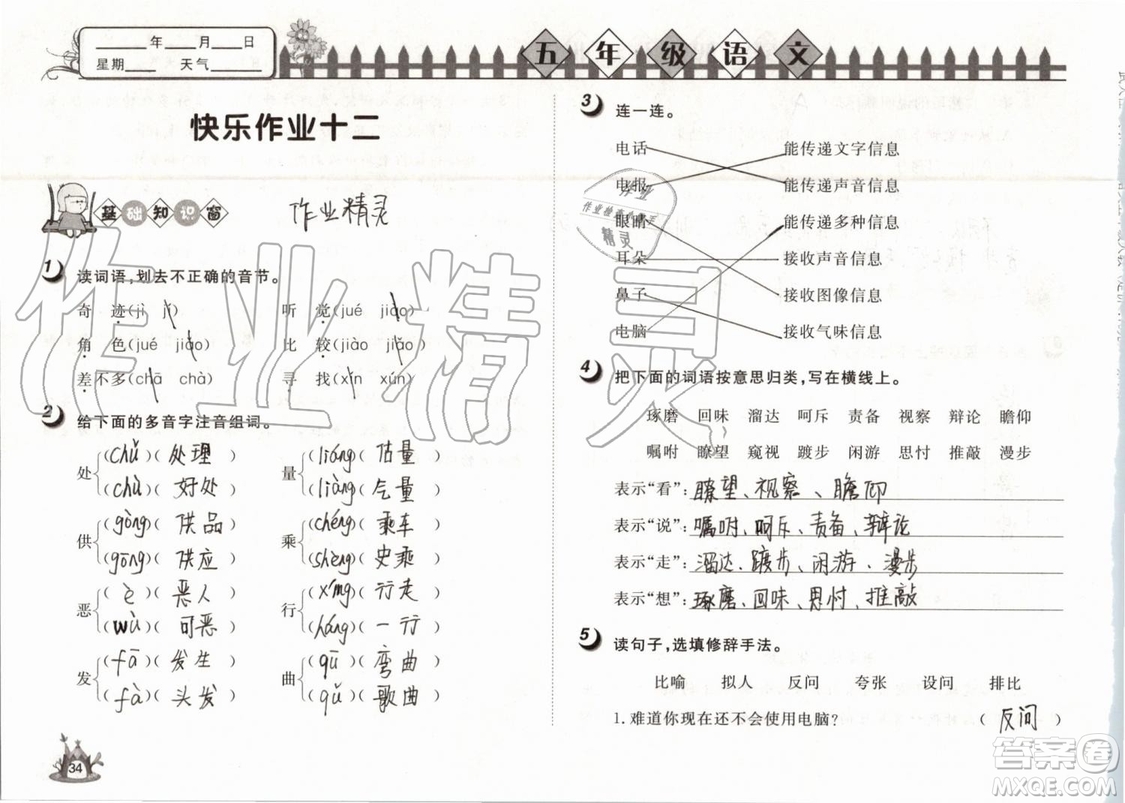 ____年____月____日
星期____ 天气________
五年级语文
快乐作业十二
基础知识窗
作业精灵
1 读词语,划去不正确的音节。
奇迹(jì jī) 听觉(jué jiào)
角色(jué jiǎo) 比较(jiào jiǎo)
差不多(chā chà) 寻找(xín xún)
2 给下面的多音字注音组词。
处 (chǔ)(处理) 量 (liáng)(估量)
(chù)(好处) (liàng)(气量)
供 (gòng)(供品) 乘 (chéng)(乘车)
(gōng)(供应) (shèng)(史乘)
恶 (è)(恶人) 行 (xíng)(行走)
(wù)(可恶) (háng)(一行)
发 (fā)(发生) 曲 (qū)(弯曲)
(fà)(头发) (qǔ)(歌曲)
34
3 连一连。
电话 能传递文字信息
电报 能传递声音信息
眼睛 能传递多种信息
耳朵 接收声音信息
鼻子 接收图像信息
电脑 接收气味信息
4 把下面的词语按意思归类,写在横线上。
琢磨 回味 溜达 呵斥 责备 视察 辩论 瞻仰
嘱咐 瞭望 窥视 踱步 闲游 思忖 推敲 漫步
表示“看”:瞭望、视察、瞻仰
表示“说”:嘱咐、呵斥、责备、辩论
表示“走”:溜达、踱步、闲游、漫步
表示“想”:琢磨、回味、思忖、推敲
5 读句子,选填修辞手法。
比喻 拟人 反问 夸张 设问 排比
1.难道你现在还不会使用电脑? (反问)
作业精灵
答案圈
MXQE.COM